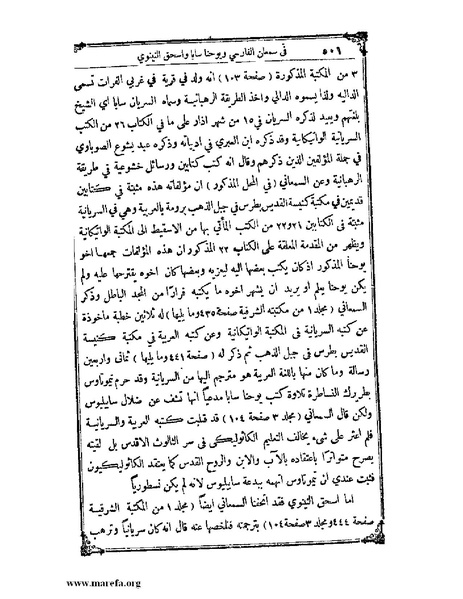 ٥٠٦ في سمعان الفارسي ويوحنا سابا واسحق النينوي
٣ من المكتبة المذكورة (صفحة ١٠٣) انه ولد في قرية في غربي الفرات تسمى
الداليه ولذا يسموه الدالي واخذ الطريقة الرهبانية وسماه السريان سابا اي الشيخ
بلغتهم ويعيد لذكره السريان في ١٥ من شهر اذار على ما في الكتاب ٣٦ من الكتب
السريانية الواتيكانية وقد ذكره ابن العبري في ادبياته وذكره عبد يشوع الصوباوي
في جملة المؤلفين الذين ذكرهم وقال انه كتب كتابين ورسائل خشوعية في طريقة
الرهبانية وعن السمعاني (في المحل المذكور) ان مؤلفاته هذه مثبتة في كتابين
قديمين في مكتبة كنيسة القديس بطرس في جبل الذهب برومة بالعربية وهي في السريانية
مثبتة في الكتابين ٢١ و٢٢ من الكتب المأتي بها من الاسقيط الى المكتبة الواتيكانية
ويظهر من المقدمة المعلقة على الكتاب ٢٢ المذكور ان هذه المؤلفات جمعها اخو
يوحنا المذكور اذ كان يكتب بعضها اليه ليعزيه وبعضها كان اخوه يقترحها عليه ولم
يكن يوحنا يعلم او يريد ان يشهر اخوه ما يكتبه فرارًا من المجد الباطل وذكر
السمعاني (مجلد ١ من مكتبته الشرقية صفحة ٤٣٥ وما يليها) له ثلاثين خطبة ماخوذة
عن كتبه السريانية في المكتبة الواتيكانية وعن كتبه العربية في مكتبة كنيسة
القديس بطرس في جبل الذهب ثم ذكر له (صفحة ٤٤١ وما يليها) ثماني واربعين
رسالة وما كان منها باللغة العربية هو مترجم اليها من السريانية وقد حرم تيموتاوس
بطررك النساطرة تلاوة كتب يوحنا سابا مدعياً انها تشف عن ضلال سابيليوس
ولكن قال السمعاني (مجلد ٣ صفحة ١٠٤) قد قلبت كتبه العربية والسريانية
فلم اعثر على شيء يخالف التعليم الكاثوليكي في سر الثالوث الاقدس بل لقيته
يصرح متواترًا باعتقاده بالآب والابن والروح القدس كما يعتقد الكاثوليكيون
فثبت عندي ان تيموتاوس اتهمه ببدعة سابيليوس لانه لم يكن نسطورياً
اما اسحق النينوي فقد اتحفنا السمعاني ايضاً (مجلد ١ من المكتبة الشرقية
صفحة ٤٤٤ ومجلد ٣ صفحة ١٠٤) بترجمته فنلخصها عنه قال انه كان سريانياً وترهب
www.marefa.org